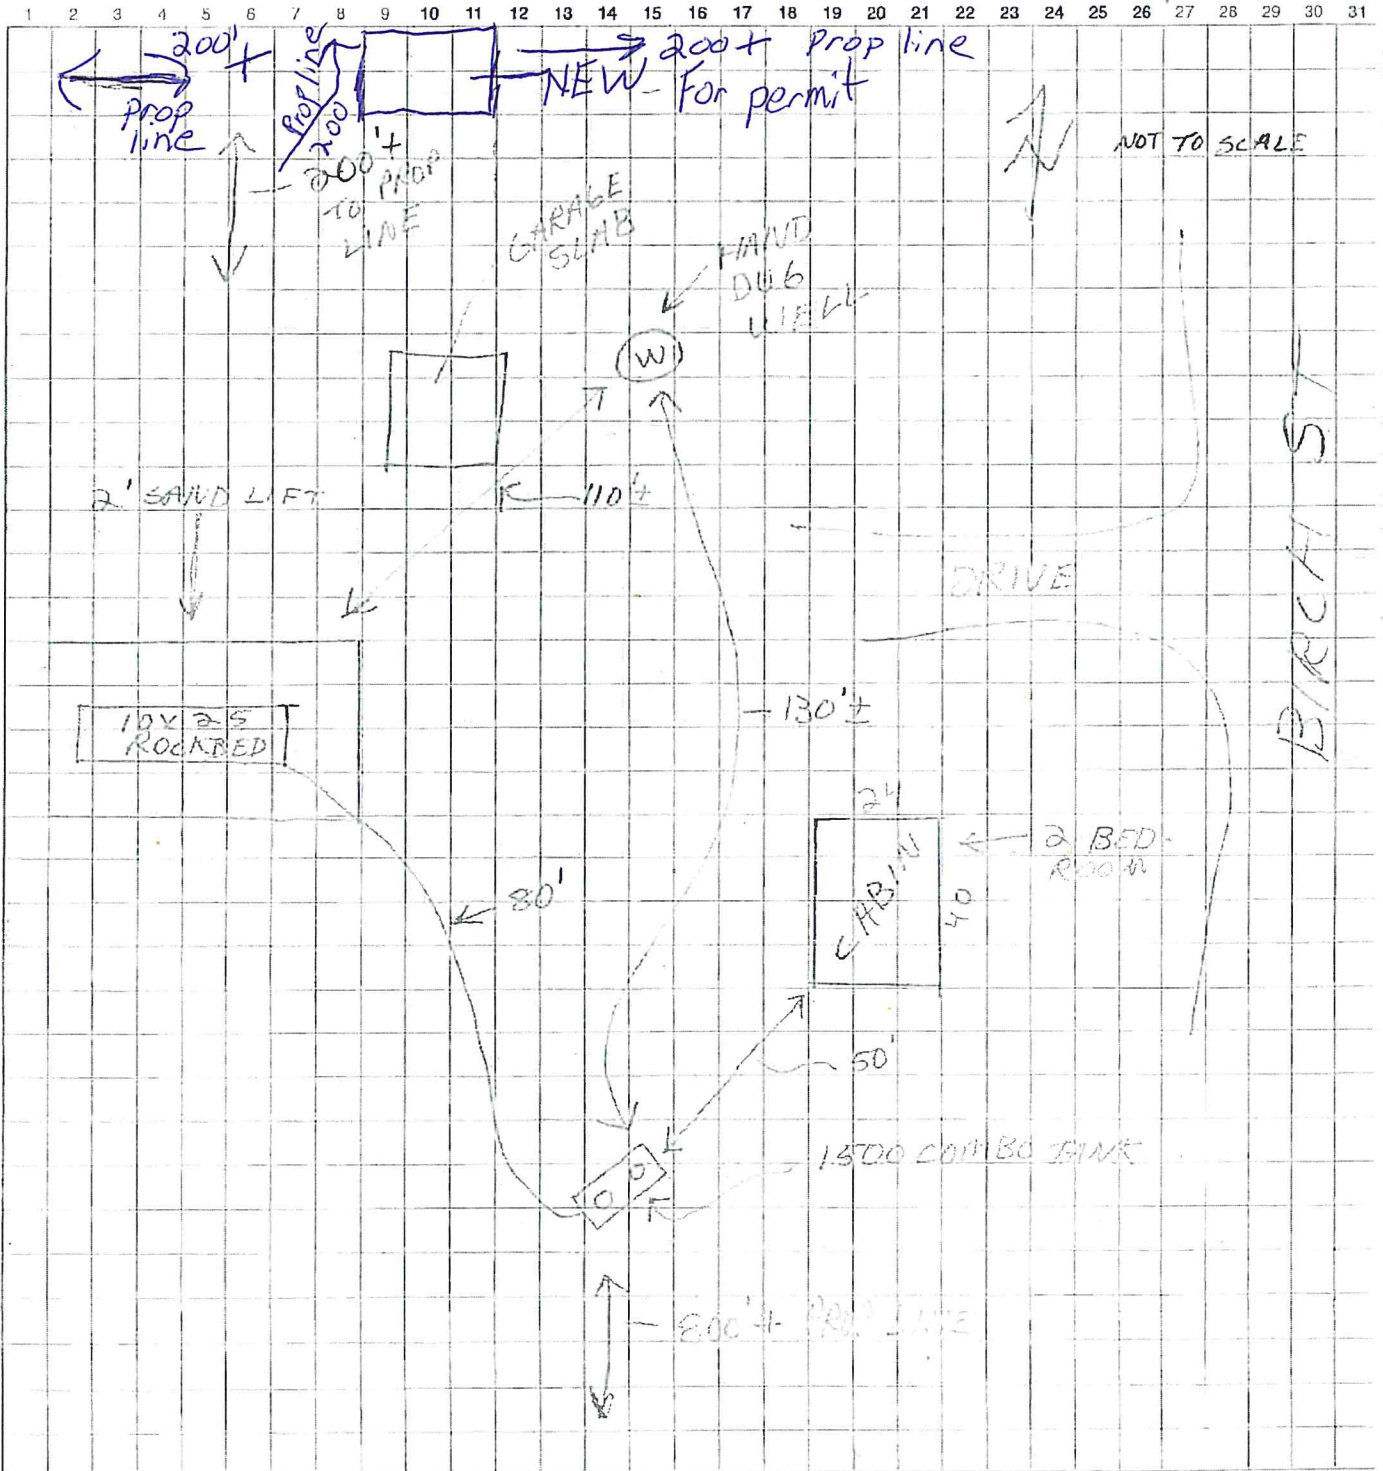 1 2 3 4 5 6 7 8 9 10 11 12 13 14 15 16 17 18 19 20 21 22 23 24 25 26 27 28 29 30 31
200'+
prop
line
Prop line
200
200+ Prop line
NEW - For permit
NOT TO SCALE
N
200'+
TO PROP
LINE
GARAGE
SLAB
HAND
DUG
WELL
W
2' SAND LIFT
110'±
BIRCH ST
DRIVE
10 x 25
ROCKBED
130'±
24
CABIN
40
2 BED-
ROOM
80'
50'
1500 COMBO TANK
PROP LINE